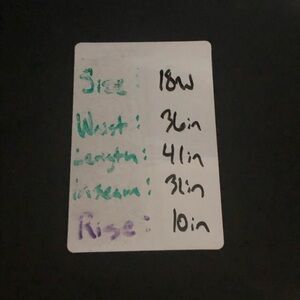 Size: 18W
Waist: 36in
Length: 41in
inseam: 31in
Rise: 10in